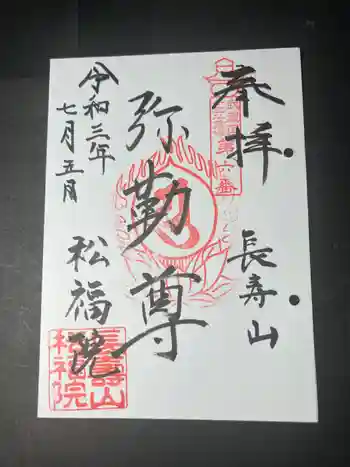 奉拝
長寿山
第六番
弥勒尊
令和三年
七月五日
松福院
長寿山
松福院